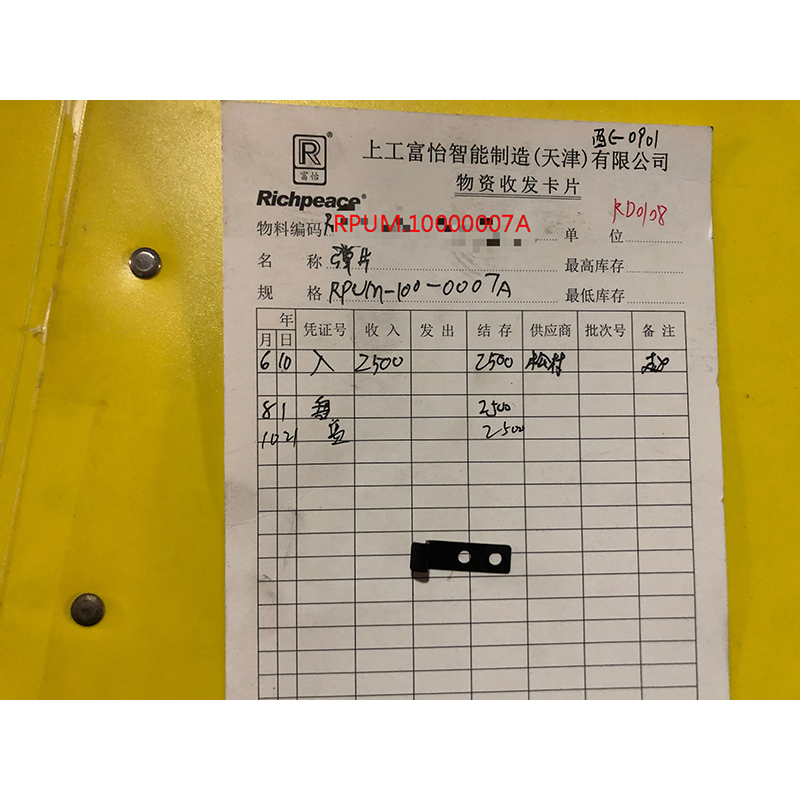 西E-0901
R®
富怡
上工富怡智能制造(天津)有限公司
Richpeace®
物资收发卡片
RD0108
物料编码 RPUM.10000007A 单 位
名 称 弹片 最高库存
规 格 RPUM-100-0007A 最低库存
年 凭证号 收 入 发 出 结 存 供应商 批次号 备 注
月 日
6 10 入 2500 2500 松村
8 1 2500
10 21 2500